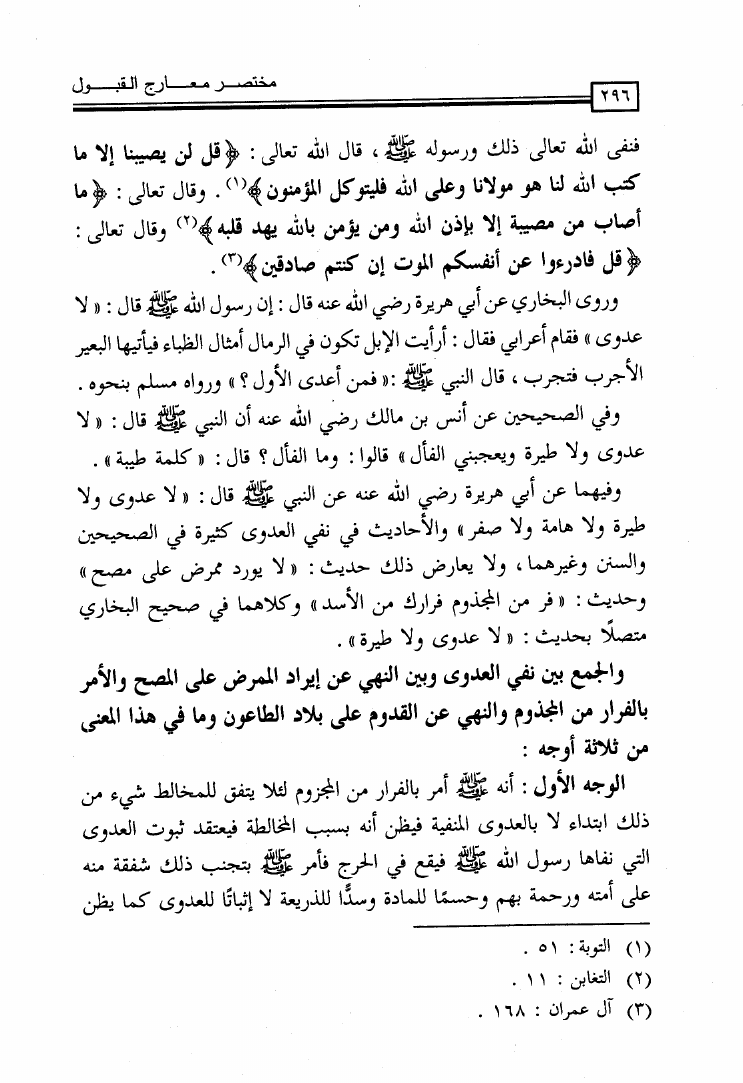 مختصر معارج القبول
٢٩٦
فنفى الله تعالى ذلك ورسوله ﷺ ، قال الله تعالى : ﴿ قل لن يصيبنا إلا ما
كتب الله لنا هو مولانا وعلى الله فليتوكل المؤمنون ﴾(١) . وقال تعالى : ﴿ ما
أصاب من مصيبة إلا بإذن الله ومن يؤمن بالله يهد قلبه ﴾(٢) وقال تعالى :
﴿ قل فادرءوا عن أنفسكم الموت إن كنتم صادقين ﴾(٣) .
وروى البخاري عن أبي هريرة رضي الله عنه قال : إن رسول الله ﷺ قال : « لا
عدوى » فقام أعرابي فقال : أرأيت الإبل تكون في الرمال أمثال الظباء فيأتيها البعير
الأجرب فتجرب ، قال النبي ﷺ :« فمن أعدى الأول ؟ » ورواه مسلم بنحوه .
وفي الصحيحين عن أنس بن مالك رضي الله عنه أن النبي ﷺ قال : « لا
عدوى ولا طيرة ويعجبني الفأل » قالوا : وما الفأل ؟ قال : « كلمة طيبة » .
وفيهما عن أبي هريرة رضي الله عنه عن النبي ﷺ قال : « لا عدوى ولا
طيرة ولا هامة ولا صفر » والأحاديث في نفي العدوى كثيرة في الصحيحين
والسنن وغيرهما ، ولا يعارض ذلك حديث : « لا يورد ممرض على مصح »
وحديث : « فر من المجذوم فرارك من الأسد » وكلاهما في صحيح البخاري
متصلًا بحديث : « لا عدوى ولا طيرة » .
والجمع بين نفي العدوى وبين النهي عن إيراد الممرض على المصح والأمر
بالفرار من المجذوم والنهي عن القدوم على بلاد الطاعون وما في هذا المعنى
من ثلاثة أوجه :
الوجه الأول : أنه ﷺ أمر بالفرار من المجزوم لئلا يتفق للمخالط شيء من
ذلك ابتداء لا بالعدوى المنفية فيظن أنه بسبب المخالطة فيعتقد ثبوت العدوى
التي نفاها رسول الله ﷺ فيقع في الحرج فأمر ﷺ بتجنب ذلك شفقة منه
على أمته ورحمة بهم وحسمًا للمادة وسدًّا للذريعة لا إثباتًا للعدوى كما يظن
(١) التوبة : ٥١ .
(٢) التغابن : ١١ .
(٣) آل عمران : ١٦٨ .